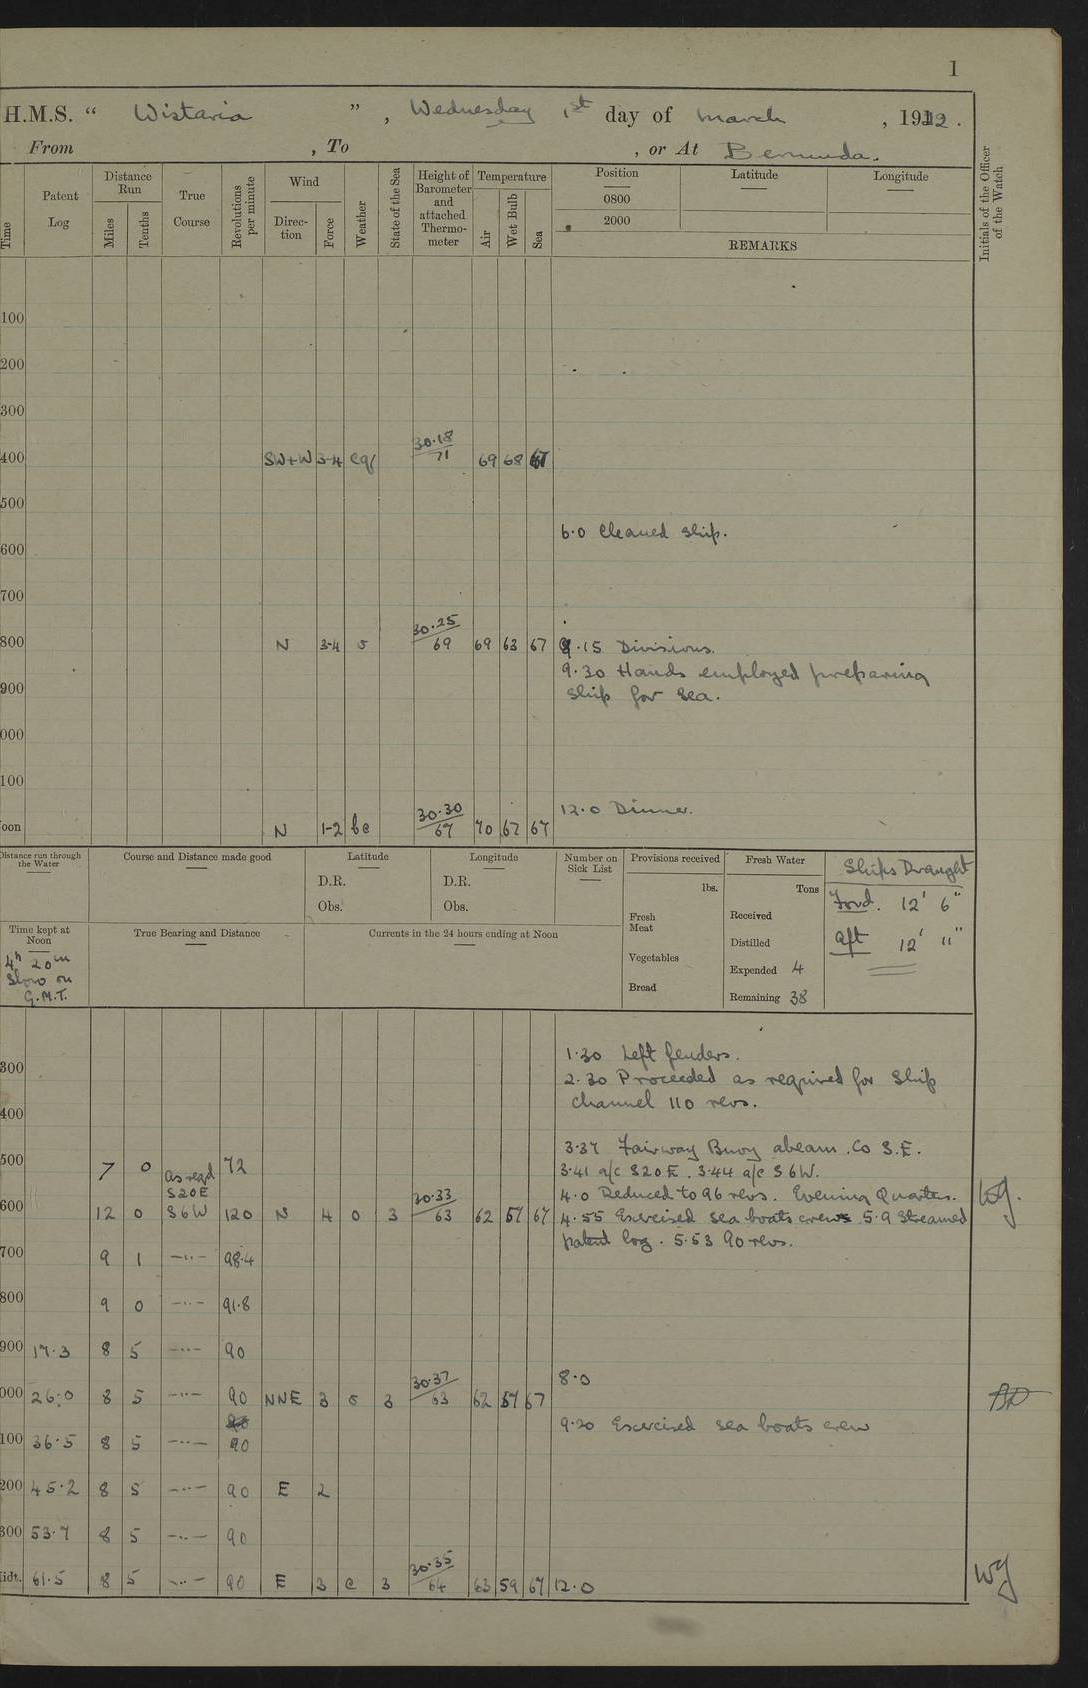 1
H.M.S. “ Wistaria ” , Wednesday 1st day of March , 1922 .
From , To , or At Bermuda.
Time
Patent Log
Distance Run
Miles
Tenths
True Course
Revolutions per minute
Wind
Direction
Force
Weather
State of the Sea
Height of Barometer and attached Thermometer
Temperature
Air
Wet Bulb
Sea
Position
0800
2000
Latitude
Longitude
REMARKS
Initials of the Officer of the Watch
100
200
300
400 SW+W 3-4 cq 30·18 / 71 69 68 67
500
6·0 Cleaned Ship.
600
700
800 N 3-4 o 30·25 / 69 69 63 67 9·15 Divisions.
9·30 Hands employed preparing
900 Ship for Sea.
000
100
12·0 Dinner.
oon N 1-2 bc 30·30 / 67 70 67 67
Distance run through the Water
Course and Distance made good
Latitude
D.R.
Obs.
Longitude
D.R.
Obs.
Number on Sick List
Provisions received
lbs.
Fresh Meat
Vegetables
Bread
Fresh Water
Tons
Received
Distilled
Expended 4
Remaining 38
Ships Draught
Ford. 12' 6"
Aft 12' 11"
Time kept at Noon
4h 20m
Slow on
G.M.T.
True Bearing and Distance
Currents in the 24 hours ending at Noon
1·30 Left fenders.
300
2·30 Proceeded as required for Ship
channel 110 revs.
400
3·37 Fairway Buoy abeam. Co S.E.
500 7 0 as reqd 72 3·41 a/c S20E. 3·44 a/c S6W.
S20E 4·0 Reduced to 96 revs. Evening Quarters.
600 12 0 S6W 120 N 4 o 3 30·33 / 63 62 57 67 4·55 Exercised sea boats crews 5·9 Streamed
patent log. 5·53 90 revs.
Wg.
700 9 1 —··— 98·4
800 9 0 —··— 91·8
900 17·3 8 5 —··— 90
8·0
000 26·0 8 5 —··— 90 NNE 3 o 3 30·37 / 63 62 57 67
9·20 Exercised sea boats crew
100 36·5 8 5 —··— 90
200 45·2 8 5 —··— 90 E 2
300 53·7 8 5 —··— 90
idt. 61·5 8 5 —··— 90 E 3 c 3 30·35 / 64 63 59 67 12·0
Wg